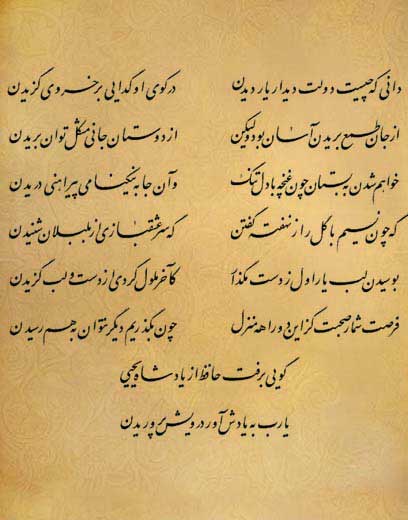 دانی که چیست دولت دیدار یار دیدن در کوی او گدایی بر خسروی گزیدن
از جان طمع بریدن آسان بود ولیکن از دوستان جانی مشکل توان بریدن
خواهم شدن به بستان چون غنچه با دل تنگ وآن جا به نیکنامی پیراهنی دریدن
گه چون نسیم با گل راز نهفته گفتن گه سر عشقبازی از بلبلان شنیدن
بوسیدن لب یار اول ز دست مگذار کآخر ملول گردی از دست و لب گزیدن
فرصت شمار صحبت کز این دو راهه منزل چون بگذریم دیگر نتوان به هم رسیدن
گویی برفت حافظ از یاد شاه یحیی
یا رب به یادش آور درویش پروریدن